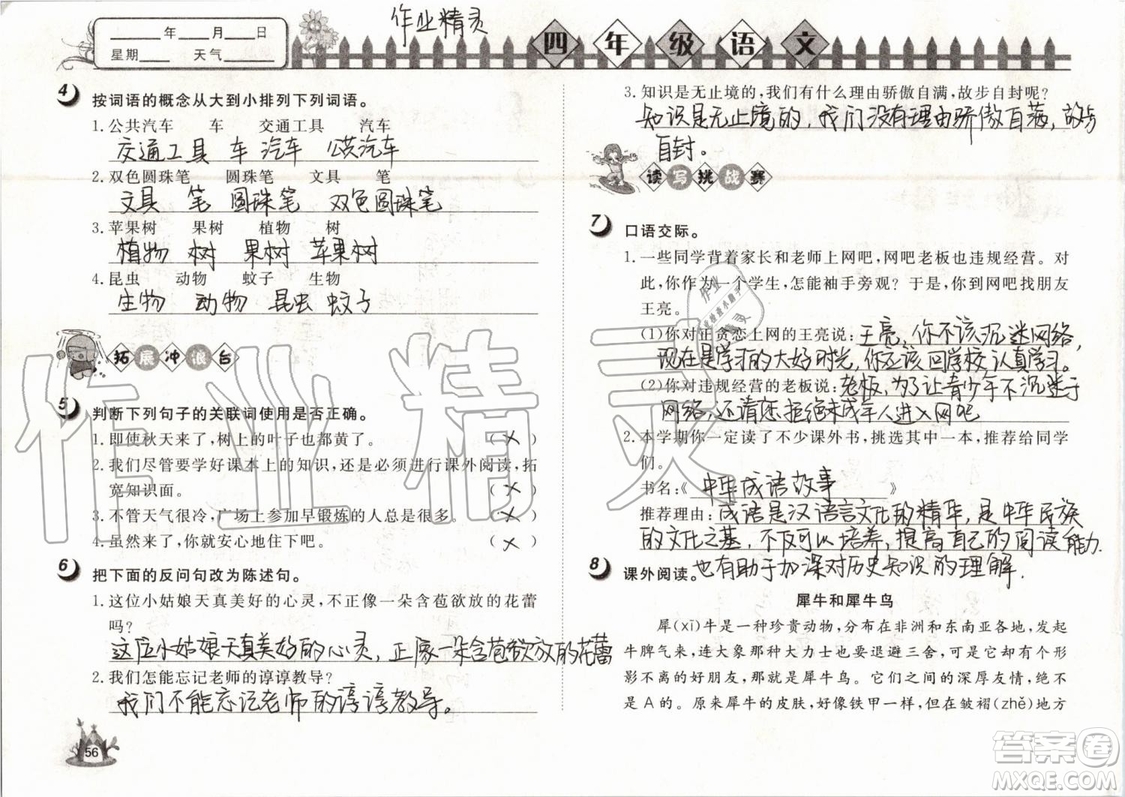 作业精灵
____年____月____日
星期____ 天气____
四年级语文
4 按词语的概念从大到小排列下列词语。
1. 公共汽车 车 交通工具 汽车
交通工具 车 汽车 公共汽车
2. 双色圆珠笔 圆珠笔 文具 笔
文具 笔 圆珠笔 双色圆珠笔
3. 苹果树 果树 植物 树
植物 树 果树 苹果树
4. 昆虫 动物 蚊子 生物
生物 动物 昆虫 蚊子
拓展冲浪台
5 判断下列句子的关联词使用是否正确。
1. 即使秋天来了，树上的叶子也都黄了。 （ × ）
2. 我们尽管要学好课本上的知识，还是必须进行课外阅读，拓
宽知识面。 （ × ）
3. 不管天气很冷，广场上参加早锻炼的人总是很多。 （ × ）
4. 虽然来了，你就安心地住下吧。 （ × ）
6 把下面的反问句改为陈述句。
1. 这位小姑娘天真美好的心灵，不正像一朵含苞欲放的花蕾
吗？
这位小姑娘天真美好的心灵，正像一朵含苞欲放的花蕾
2. 我们怎能忘记老师的谆谆教导？
我们不能忘记老师的谆谆教导。
56
3. 知识是无止境的，我们有什么理由骄傲自满，故步自封呢？
知识是无止境的，我们没有理由骄傲自满，故步
自封。
读写挑战赛
7 口语交际。
1. 一些同学背着家长和老师上网吧，网吧老板也违规经营。对
此，你作为一个学生，怎能袖手旁观？于是，你到网吧找朋友
王亮。
(1)你对正贪恋上网的王亮说：王亮，你不该沉迷网络，
现在是学习的大好时光，你应该回学校认真学习。
(2)你对违规经营的老板说：老板，为了让青少年不沉迷于
网络，还请您拒绝未成年人进入网吧
2. 本学期你一定读了不少课外书，挑选其中一本，推荐给同学
们。
书名：《 中华成语故事 》
推荐理由：成语是汉语言文化的精华，是中华民族
的文化之基，不反可以培养，提高自己的阅读能力.
也有助于加深对历史知识的理解.
8 课外阅读。
犀牛和犀牛鸟
犀(xī)牛是一种珍贵动物，分布在非洲和东南亚各地，发起
牛脾气来，连大象那种大力士也要退避三舍，然而它却有个形
影不离的好朋友，那就是犀牛鸟。它们之间的深厚友情，绝不
是 A 的。原来犀牛的皮肤，好像铁甲一样，但在皱褶(zhě)地方
作业精灵
答案圈
MXQE.COM